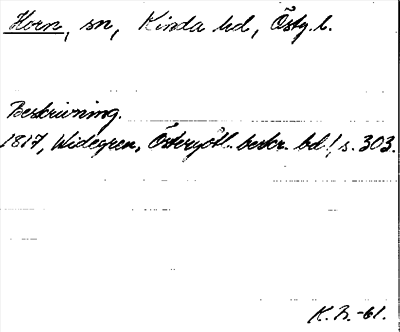 Horn, sn, Kinda hd, Östg. l.
Beskrivning.
1817, Widegren, Östergötl. beskr. bd 1, s. 303.
K. B. -61.